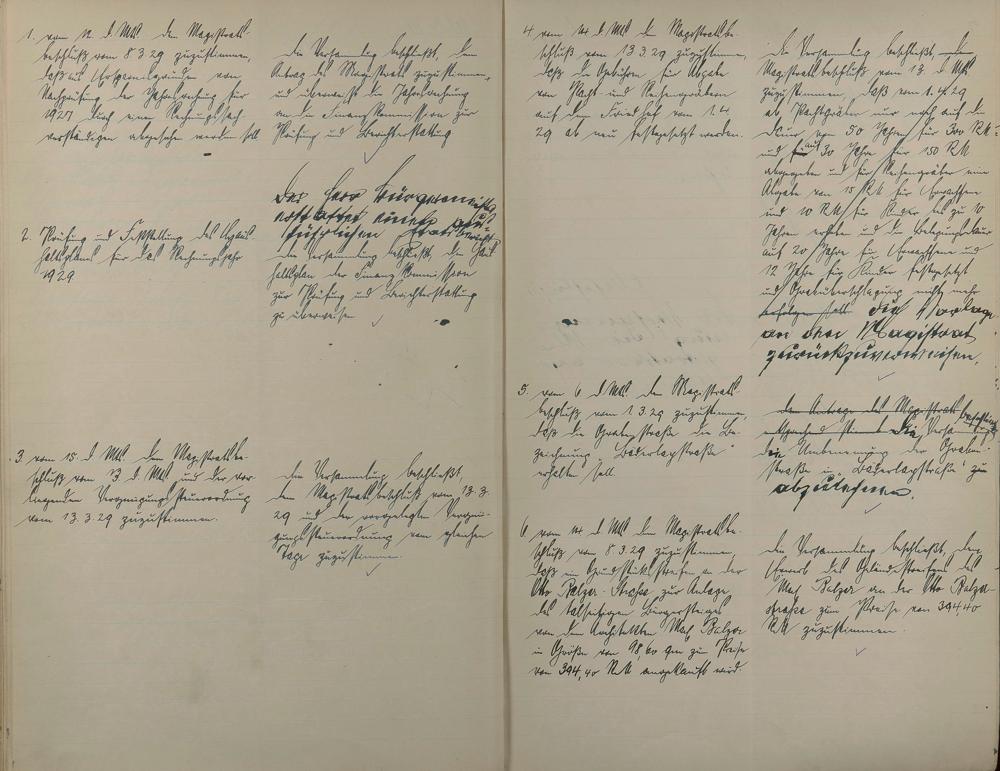 1. vom 12. d. Mts. dem Magistrats-
beschluß vom 8.3.29 zuzustimmen,
daß aus Ersparnisgründen von
Nachprüfung der Jahresrechnung für
1927 durch einen Rechnungssach-
verständigen abgesehen werden soll
die Versammlung beschließt, dem
Antrag des Magistrats zuzustimmen,
und überweist die Jahresrechnung
an die Finanzkommission zur
Prüfung und Berichterstattung
2. Prüfung und Feststellung des
haltsplans für das Rechnungsjahr
1929
Der Herr Bürgermeister
erstattet einen aus-
führlichen
die Versammlung beschließt, den Haus-
haltsplan der Finanzkommission
zur Prüfung und Berichterstattung
zu überweisen
3. vom 15. d. Mts. dem Magistratsbe-
schluß vom 13. d. Mts. und der vor-
liegenden Vergnügungssteuerordnung
vom 13.3.29 zuzustimmen.
die Versammlung beschließt,
dem Magistratsbeschluß vom 13.3.
29 und der vorgelegten Vergnü-
gungssteuerordnung vom gleichen
Tage zuzustimmen.
4. vom 14. d. Mts. dem Magistratsbe-
schluß vom 13.3.29 zuzustimmen,
daß die Gebühren für Abgabe
von Pacht- und Reihengräbern
auf dem Friedhof vom 1.4.
29 ab neu festgesetzt werden.
die Versammlung beschließt, dem
Magistratsbeschluß vom 13. d. Mts.
zuzustimmen, daß vom 1.4.29
ab Pachtgräber nur noch auf die
Dauer von 50 Jahren für 300 RM
und auf 30 Jahre für 150 RM
abgegeben und für Reihengräber eine
Abgabe von 15 RM für Erwachsene
und 10 RM für Kinder bis zu 10
Jahren erhoben und die Belegungsdauer
auf 20 Jahre für Erwachsene und
12 Jahre für Kinder festgesetzt
und Grabüberschlagung nicht mehr
erfolgen soll. die Vorlage
an den Magistrat
zurückzuverweisen.
5. vom 6. d. Mts. dem Magistrats-
beschluß vom 1.3.29 zuzustimmen,
daß die Grabenstraße die Be-
zeichnung „Baderlaystraße“
erhalten soll.
dem Antrage des Magistrats
die Versammlung
die Umbenennung der Graben-
straße in „Baderlaystraße“ zu
abzulehnen.
6. vom 14. d. Mts. dem Magistratsbe-
schluß vom 8.3.29 zuzustimmen,
daß ein Grundstücksstreifen an der
Otto Balzer-Straße zur Anlage
des talseitigen Bürgersteiges
von dem Architekten Balzer
in Größe von 98,60 qm zum Preise
von 394,40 RM angekauft wird.
die Versammlung beschließt, dem
Erwerb des Geländestreifens des
Balzer an der Otto Balzer-
straße zum Preise von 394,40
RM zuzustimmen.